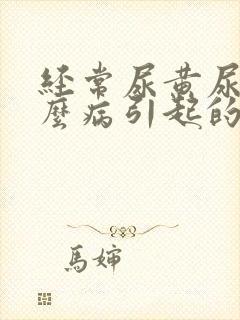 经常尿黄尿
麼病引起的
馬婶